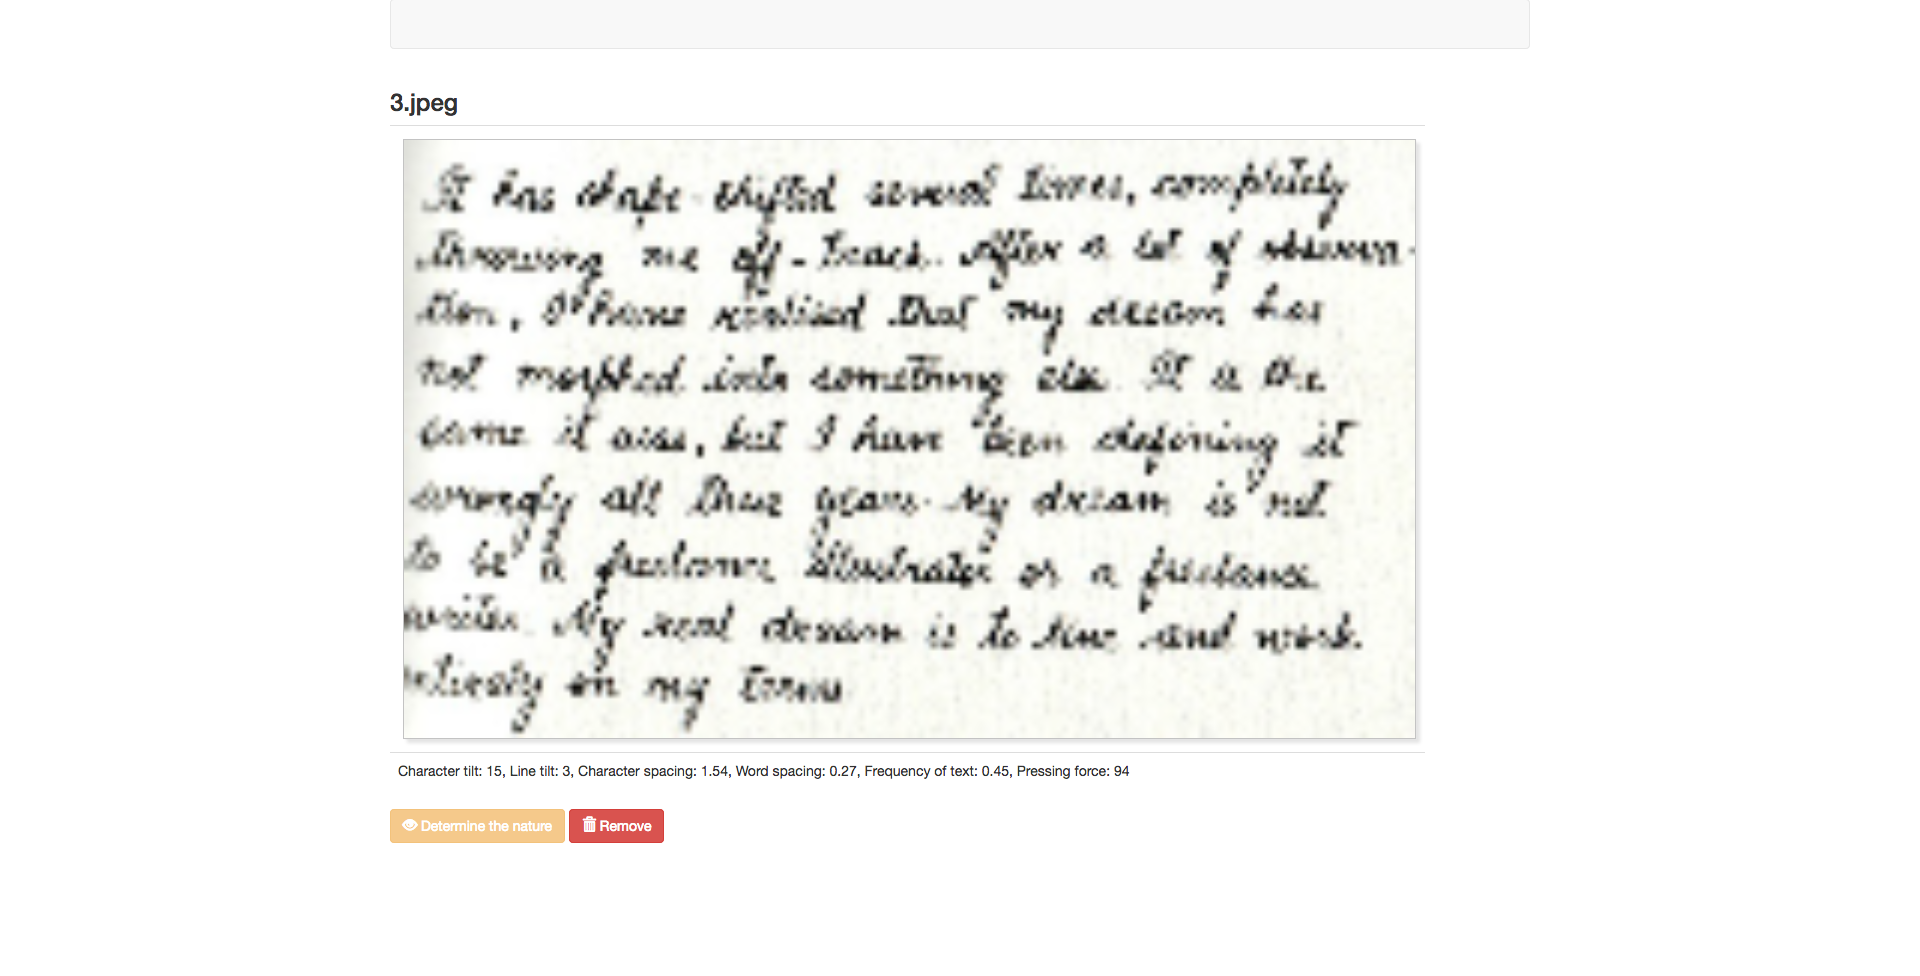 3.jpeg
It has shape-shifted several times, completely
throwing me off-track. After a lot of observa-
tion, I have realised that my dream has
not morphed into something else. It is the
same it was, but I have been defining it
wrongly all these years. My dream is not
to be a freelance illustrator or a freelance
writer. My real dream is to live and work
entirely on my terms
Character tilt: 15, Line tilt: 3, Character spacing: 1.54, Word spacing: 0.27, Frequency of text: 0.45, Pressing force: 94
Determine the nature Remove